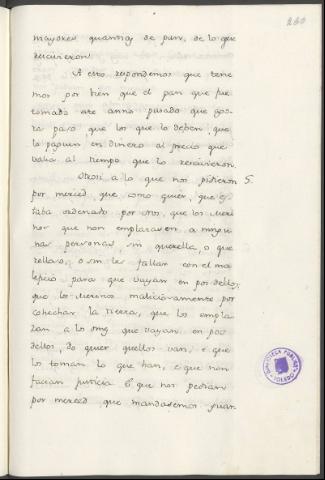 260
mayores quantias de pan, de lo que
recivieron.
A esto respondemos que tene
mos por bien que el pan que fue
tomado este anno pasado que ago-
ra paso, que los que lo deben, que
lo paguen en dinero al precio que
valia al tiempo que lo recivieron.
Otrosi a lo que nos pidieron 5.
por merced, que como quier, que es
taba ordenado por nos, que los Meri
nos que non emplazasen a ningu
nas personas sin querella, o que
rellosos, o sin les fallar con el ma
leficio para que vayan en pos dellos,
que los Merinos maliciosamente por
cohechar la tierra, que los empla
zan a los mas que vayan en pos
dellos, do quier quellos van, e que
les toman lo que han, e que non
facian justicia è que nos pedian
por merced que mandasemos guar
BIBLIOTECA PUBLICA
TOLEDO